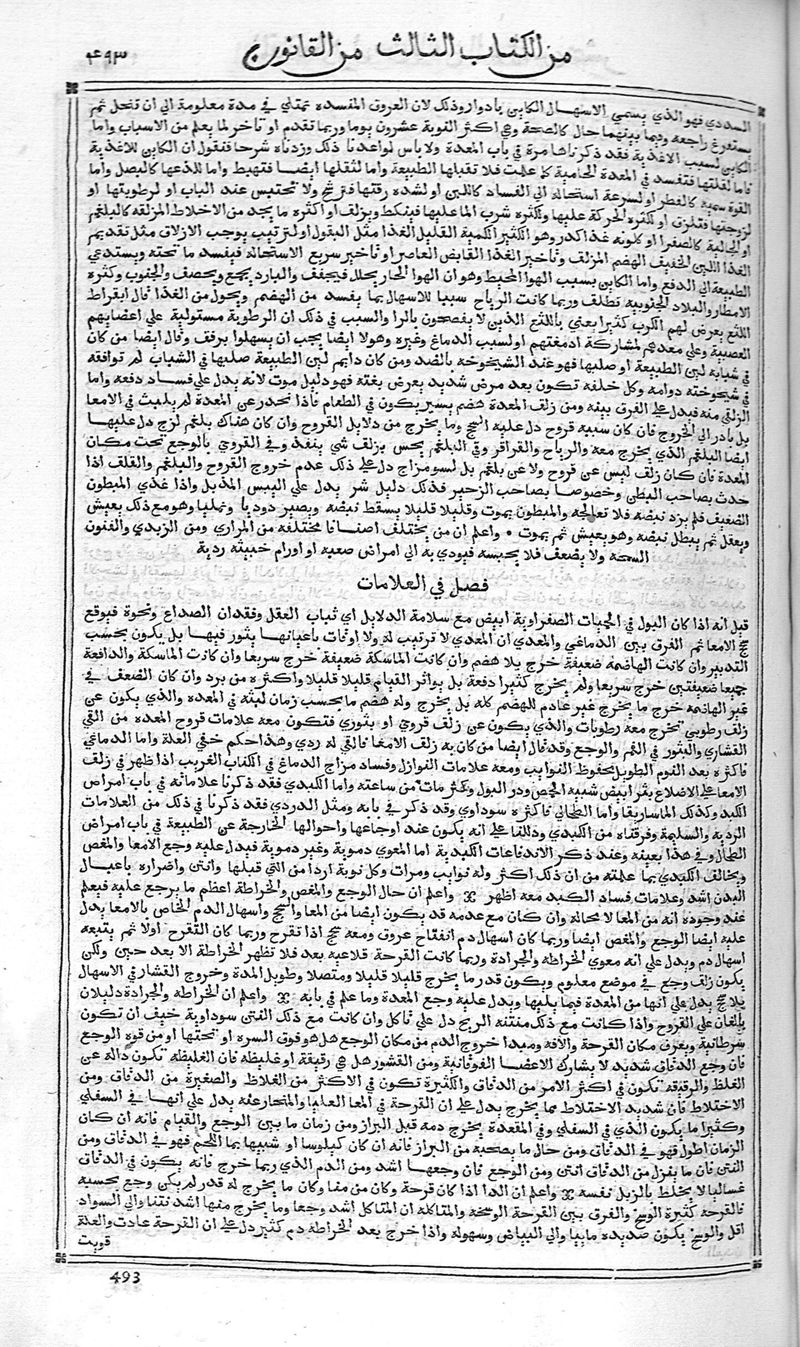 من الكتاب الثالث من القانون
٤٩٣
السددي فهو الذي يسمي الاسهال الكاين بادوار وذلك لان العروق المفسده تمتلي في مدة معلومة الي ان تنحل ثم
يستفرغ راجعه وفيما بينهما حال كالصحة وهي اكثر النوبة عشرون يوما وربما تقدم او تاخر لما يعلم من الاسباب واما
الكاين لسبب الاغذية فقد ذكرناها مرة في باب المعدة ولا باس لو اعدنا ذلك وزدناه شرحا فنقول ان الكاين للاغذية
فاما لقلتها فتفسد في المعدة الحامية كما علمت فلا تقبلها الطبيعة واما لثقلها ايضا فتهبط واما للذعها كالبصل واما
لقوة سمية كالفطر او لسرعة استحاله الي الفساد كاللبن او لشده رقتها فترشح ولا تحتبس عند الباب او لرطوبتها او
لزوجتها فتنزلق او لكثره الحركة عليها وكثره شرب الما عليها فينكط ويزلف او اكثره ما يجد من الاخلاط المزلقه كالبلغم
او الجالية كالصفرا او لكونه غذا كدر وهو الكثير الكمية القليل الغذا مثل البقول او لترتيب يوجب الازلاق مثل تقديم
الغذا اللين الخفيف الهضم المزلف وتاخير الغذا القابض العاصر او تاخير سريع الاستحاله فيفسد ما تحته ويستدعي
الطبيعة الي الدفع واما الكاين بسبب الهوا المحيط وهو ان الهوا الحار يحلل فيجفف والبارد يجمع ويحصف والجنوب وكثره
الامطار والبلاد الجنوبية تطلف وربما كانت الرياح سببا للاسهال بما يفسد من الهضم ويحول من الغذا قال ابقراط
اللثغ يعرض لهم الكرب كثيرا يعني باللثغ الذين لا يفصحون بالرا والسبب في ذلك ان الرطوبة مستولية علي اعضايهم
العصبية وعلي معدهم لمشاركة ادمغتهم او لسبب الدماغ وغيره وهولا ايضا يجب ان يسهلوا برفف وقال ايضا من كان
في شبابه لين الطبيعة او صلبها فهو عند الشيخوخه بالضد ومن كان دايم لين الطبيعة صلبها في الشباب لم توافقه
في شيخوخته دوامه وكل خلفه تكون بعد مرض شديد يعرض بغته فهو دليل موت لانه يدل علي فساد دفعه واما
الزلقي منه فيدل علي الفرق بينه ومن زلف المعدة هضم يسير يكون في الطعام فاذا تحدر عن المعدة لم يلبث في الامعا
بل بادر الي الخروج فان كان سببه قروح دل عليه السحج وما يخرج من دلايل القروح وان كان هناك بلغم لزج دل عليها
ايضا البلغم الذي يخرج معه والرياح والقراقر وفي البلغم يحس بزلف شي ينفد وفي القروي بالوجع تحت مكان
المعدة فان كان زلف ليس عن قروح ولا عن بلغم بل لسو مزاج دل علي ذلك عدم خروج القروح والبلغم والقلف اذا
حدث بصاحب البطن وخصوصا بصاحب الزحير فذلك دليل شر يدل علي اليبس المذبل واذا غذي المبطون
الضعيف فلم يزد نبضه فلا تعالجه والمبطون يموت وقليلا قليلا يسقط نبضه ويصير دوديا ونمليا وهو مع ذلك يعيش
ويعقل ثم يبطل نبضه وهو يعيش ثم يموت واعلم ان من يختلف اصنافا مختلفه من المراري ومن الزبدي والفنون
السمجه ولا يضعف فلا يحبسه فيودي به الي امراض صعبه او اورام خبيثه ردية
فصل في العلامات
قيل انه اذا كان البول في الحميات الصفراوية ابيض مع سلامة الدلايل اي ثبات العقل وفقدان الصداع ونحوه فيوقع
سحج الامعا ثم الفرق بين الدماغي والمعدي ان المعدي لا ترتيب له ولا اوقات باعيانها يثور فيها بل يكون بحسب
التدبير وان كانت الهاضمه ضعيفة خرج بلا هضم وان كانت الماسكة ضعيفة خرج سريعا وان كانت الماسكة والدافعة
جميعا ضعيفتين خرج سريعا ولم يخرج كثيرا دفعة بل بواتر القيام قليلا قليلا واكثره من برد وان كان الضعف في
غير الهاضمه خرج ما يخرج غير عادم للهضم كله بل يخرج وله هضم ما بحسب زمان لبثه في المعده والذي يكون عن
زلف رطوبي تخرج معه رطوبات والذي يكون عن زلف قروي او بثوري فتكون معه علامات قروح المعده من القي
القشاري والبثور في الفم والوجع وقد قال ايضا من كان به زلف الامعا فالقي له ردي وهذا حكم خفي العلة واما الدماغي
فاكثره بعد النوم الطويل بحفوظ النوايب ومعه علامات النوازل وفساد مزاج الدماغ في الكتاب الغريب اذا ظهر في زلف
الامعا علي الاضلاع بثر ابيض شبيه الحمص ودر البول وكثر مات من ساعته واما الكبدي فقد ذكرنا علاماته في باب امراض
الكبد وكذلك الماساريقا واما الطحالي فاكثره سوداوي وقد ذكر في بابه ومثل الدردي فقد ذكرنا في ذلك من العلامات
الردية والسليمة وفرقناه من الكبدي ودللنا علي انه يكون عند اوجاعها واحوالها الخارجة عن الطبيعة في باب امراض
الطحال وفي هذا بعينه وعند ذكر الاندفاعات الكبدية اما المعوي دموية وغير دموية فيدل عليه وجع الامعا والمغص
ويخالف الكبدي بما علمته من ان ذلك اكثر وله نوايب ومرات وكل نوبة اردا من التي قبلها وانتن واضراره باعيال
البدن اشد وعلامات فساد الكبد معه اظهر واعلم ان حال الوجع والمغص والخراطة اعظم ما يرجع عليه فيعلم
عند وجوده انه من المعا لا محالة وان كان مع عدمه قد يكون ايضا من المعا والسحج واسهال الدم الخاص بالامعا يدل
عليه ايضا الوجع والمغص ايضا وربما كان اسهال دم انفتاح عروق ومعه سحج اذا تقرح وربما كان التقرح اولا ثم يتبعه
اسهال دم ويدل علي انه معوي الخراطه والجرادة وربما كانت القرحة قلاعيه بعد فلا تظهر الخراطة الا بعد حين ولكن
يكون زلف وجع في موضع معلوم ويكون قدر ما يخرج قليلا قليلا ومتصلا وطويل المدة وخروج القشار في الاسهال
بلا سحج يدل علي انها من المعدة فيما يليها ويدل عليه وجع المعدة وما علم في بابه واعلم ان الخراطه والجرادة دليلان
بالغان علي القروح واذا كانت مع ذلك منتنه الريح دل علي تاكل وان كانت مع ذلك الفتن سوداوية خيف ان تكون
سرطانية ويعرف مكان القرحة والافه ومبدا خروج الدم من مكان الوجع هل هو فوق السره او تحتها او من قوه الوجع
فان وجع الدقاق شديد لا يشارك الاعضا الفوقانية ومن القشور هل هي رقيقة او غليظه فان الغليظه تكون دالة عن
الغلظ والرقيقه تكون في اكثر الامر من الدقاق والكثيرة تكون في الاكثر من الغلاظ والصغيرة من الدقاق ومن
الاختلاط فان شديد الاختلاط مما يخرج يدل علي ان القرحة في المعا العليا والمتحاز عنه يدل علي انها في السفلي
وكثيرا ما يكون الذي في السفلي وفي المقعدة يخرج دمه قبل البراز ومن زمان ما بين الوجع والقيام فانه ان كان
الزمان اطول فهو في الدقاق ومن حال ما يصحبه من البراز فانه ان كان كيلوسا او شبيها بما اللحم فهو في الدقاق ومن
الفتن فان ما ينزل من الدقاق انتن ومن الوجع فان وجعها اشد ومن الدم الذي ربما خرج فانه يكون في الدقاق
غساليا لا يخلط بالزبل نفسه واعلم ان الدا اذا كان قرحة وكان من مفا وكان ما يخرج له قدر لم يكن وجع بحسبه
فالقرحه كثيرة الوسخ والفرق بين القرحة الوسخه والمتاكله ان المتاكل اشد وجعا وما يخرج منها اشد نتنا والي السواد
اقل والوسخ يكون صديده ماييا والي البياض وسهوله واذا خرج بعد الخراطه دم كثير دل علي ان القرحة عادت والعلة
قويت
493